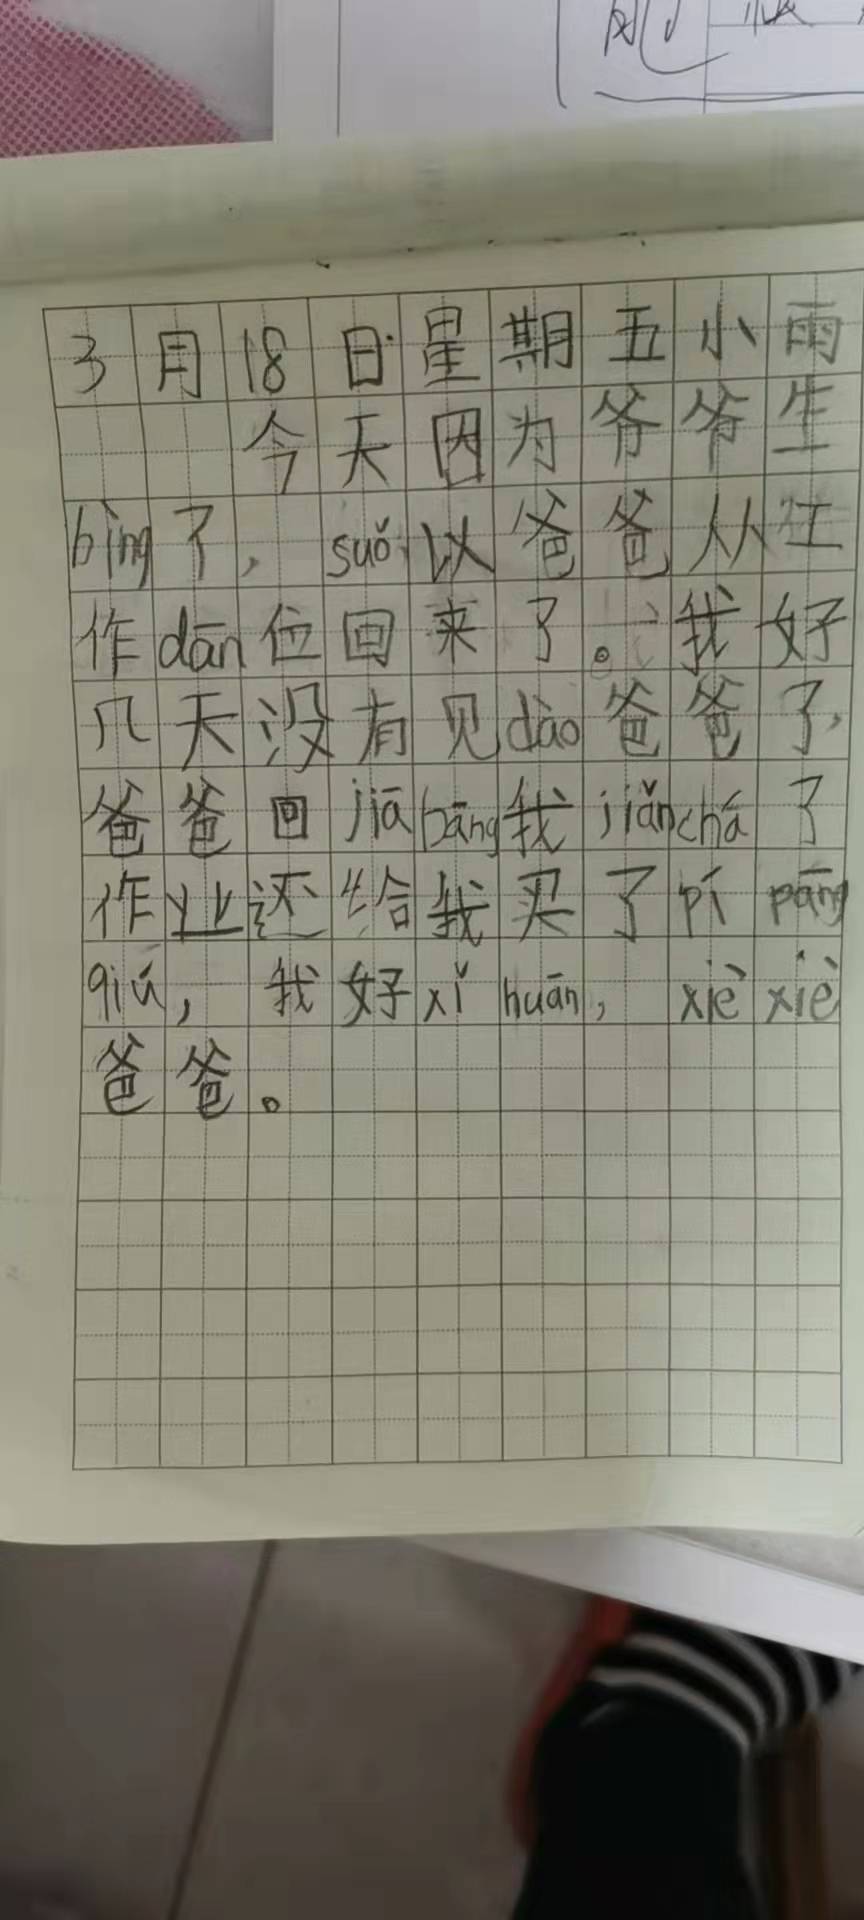 3月18日星期五小雨
今天因为爷爷生
bìng了，suǒ以爸爸从工
作dān位回来了。我好
几天没有见dào爸爸了，
爸爸回jiā bāng我jiǎnchá了
作业还给我买了pí pāng
qiú，我好xǐ huān，xièxiè
爸爸。